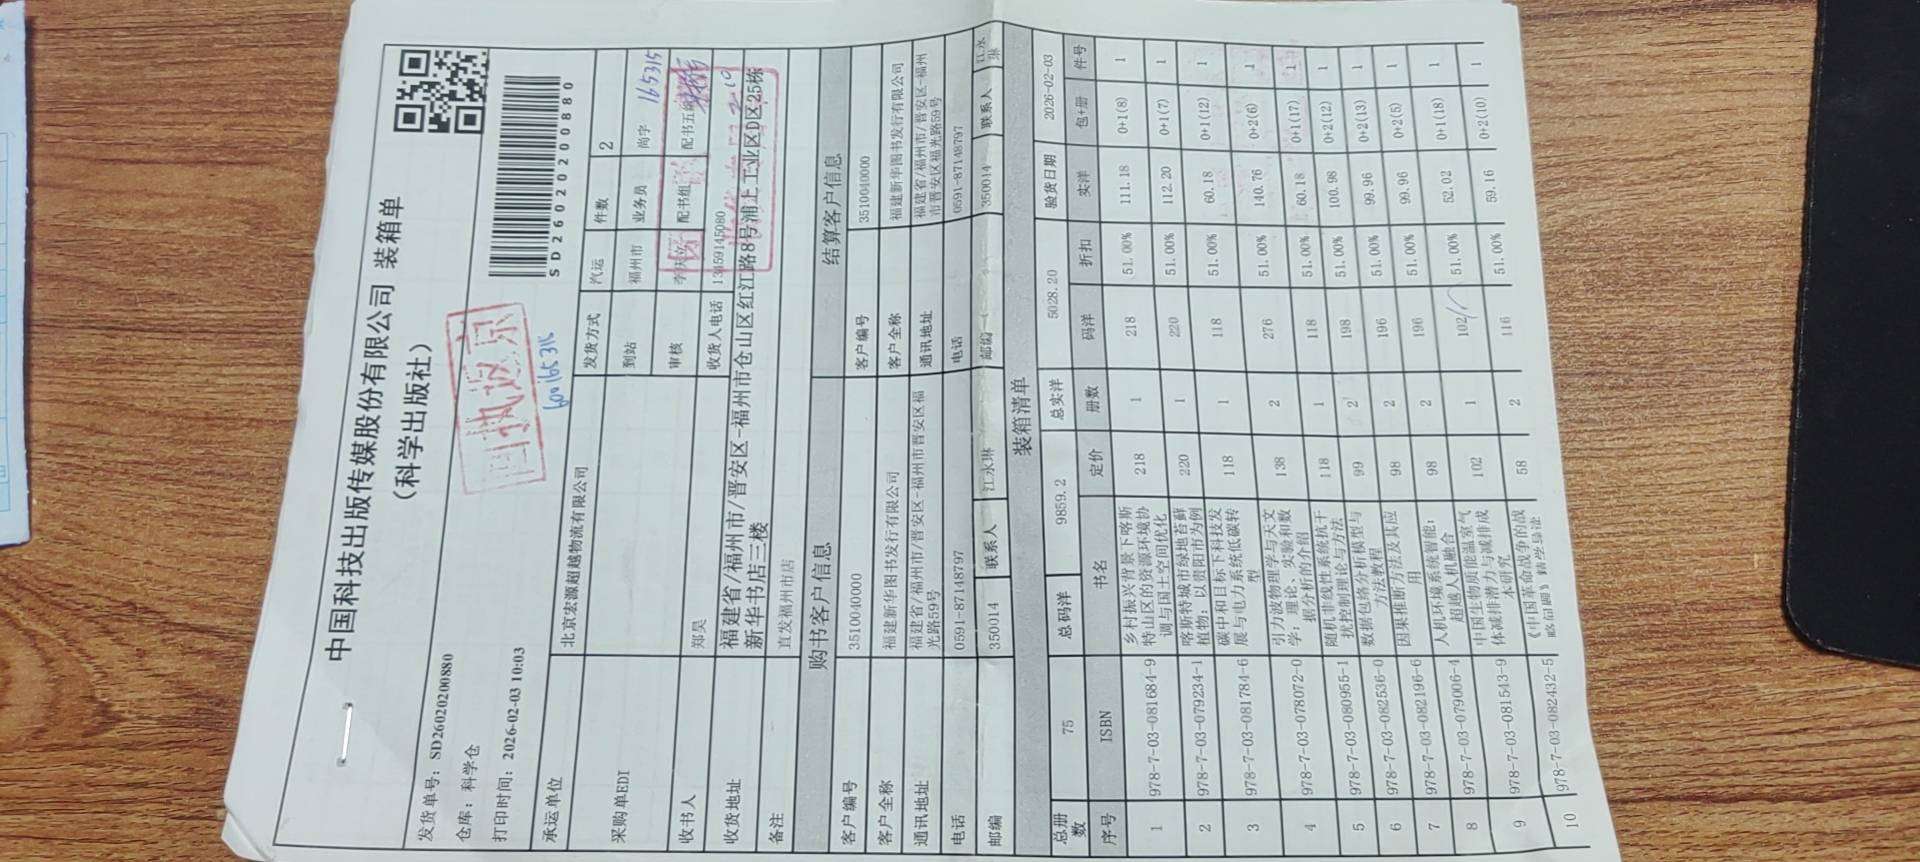 中国科技出版传媒股份有限公司 装箱单
（科学出版社）
发货单号：SD26020200880
仓库：科学仓
打印时间：2026-02-03 10:03
回执返京
600165315
SD26020200880
承运单位 北京宏源超越物流有限公司 发货方式 汽运 件数 2
采购单EDI 到站 福州市 业务员 尚字 165315
审核 配书组 配书五
收书人 郑昊 收货人电话 13459145080
收货地址 福建省/福州市/晋安区-福州市仓山区红江路8号浦上工业区D区25栋
新华书店三楼
备注 直发福州市店
购书客户信息 结算客户信息
客户编号 3510040000 客户编号 3510040000
客户全称 福建新华图书发行有限公司 客户全称 福建新华图书发行有限公司
通讯地址 福建省/福州市/晋安区-福州市晋安区福
光路59号 通讯地址 福建省/福州市/晋安区-福州
市晋安区福光路59号
电话 0591-87148797 电话 0591-87148797
邮编 350014 联系人 江永琳 邮编 350014 联系人 江永
琳
装箱清单
总册
数 75 总码洋 9859.2 总实洋 5028.20 验货日期 2026-02-03
序号 ISBN 书名 定价 册数 码洋 折扣 实洋 包+册 件号
1 978-7-03-081684-9 乡村振兴背景下喀斯
特山区的资源环境协
调与国土空间优化 218 1 218 51.00% 111.18 0+1(8) 1
2 978-7-03-079234-1 喀斯特城市绿地苔藓
植物：以贵阳市为例 220 1 220 51.00% 112.20 0+1(7) 1
3 978-7-03-081784-6 碳中和目标下科技发
展与电力系统低碳转
型 118 1 118 51.00% 60.18 0+1(12) 1
4 978-7-03-078072-0 引力波物理学与天文
学：理论、实验和数
据分析的介绍 138 2 276 51.00% 140.76 0+2(6) 1
5 978-7-03-080955-1 随机非线性系统抗干
扰控制理论与方法 118 1 118 51.00% 60.18 0+1(17) 1
6 978-7-03-082536-0 数据包络分析模型与
方法教程 99 2 198 51.00% 100.98 0+2(12) 1
7 978-7-03-082196-6 因果推断方法及其应
用 98 2 196 51.00% 99.96 0+2(13) 1
8 978-7-03-079006-4 人机环境系统智能：
超越人机融合 98 2 196 51.00% 99.96 0+2(5) 1
9 978-7-03-081543-9 中国生物质能温室气
体减排潜力与减排成
本研究 102 1 102 51.00% 52.02 0+1(18) 1
10 978-7-03-082432-5 《中国革命战争的战
略问题》 58 2 116 51.00% 59.16 0+2(10) 1